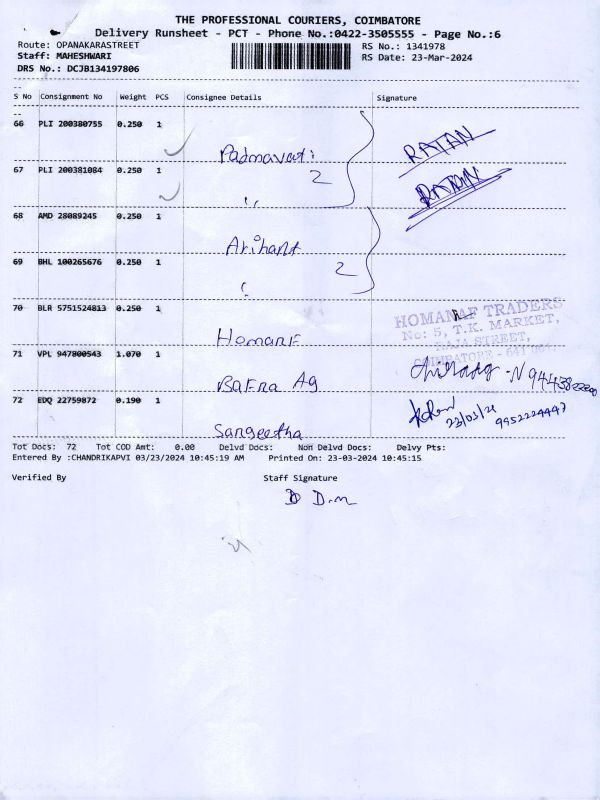 THE PROFESSIONAL COURIERS, COIMBATORE
Delivery Runsheet - PCT - Phone No.:0422-3505555 - Page No.:6
Route: OPANAKARASTREET RS No.: 1341978
Staff: MAHESHWARI RS Date: 23-Mar-2024
DRS No.: DCJB134197806
S No Consignment No Weight PCS Consignee Details Signature
66 PLI 200380755 0.250 1
Padmavati RATAN
67 PLI 200381084 0.250 1
2 RATAN
"
68 AMD 28089245 0.250 1
Arihant
69 BHL 100265676 0.250 1 2
70 BLR 5751524813 0.250 1
HOMANAF TRADERS
No: 5, T.K. MARKET,
Homanf RAJA STREET,
COIMBATORE - 641 001.
71 VPL 947800543 1.070 1
Bafna Ag
72 EDQ 22759872 0.190 1
23/03/24 9952224447
Sangeetha
Tot Docs: 72 Tot COD Amt: 0.00 Delvd Docs: Non Delvd Docs: Delvy Pts:
Entered By :CHANDRIKAPVI 03/23/2024 10:45:19 AM Printed On: 23-03-2024 10:45:15
Verified By Staff Signature
D.m